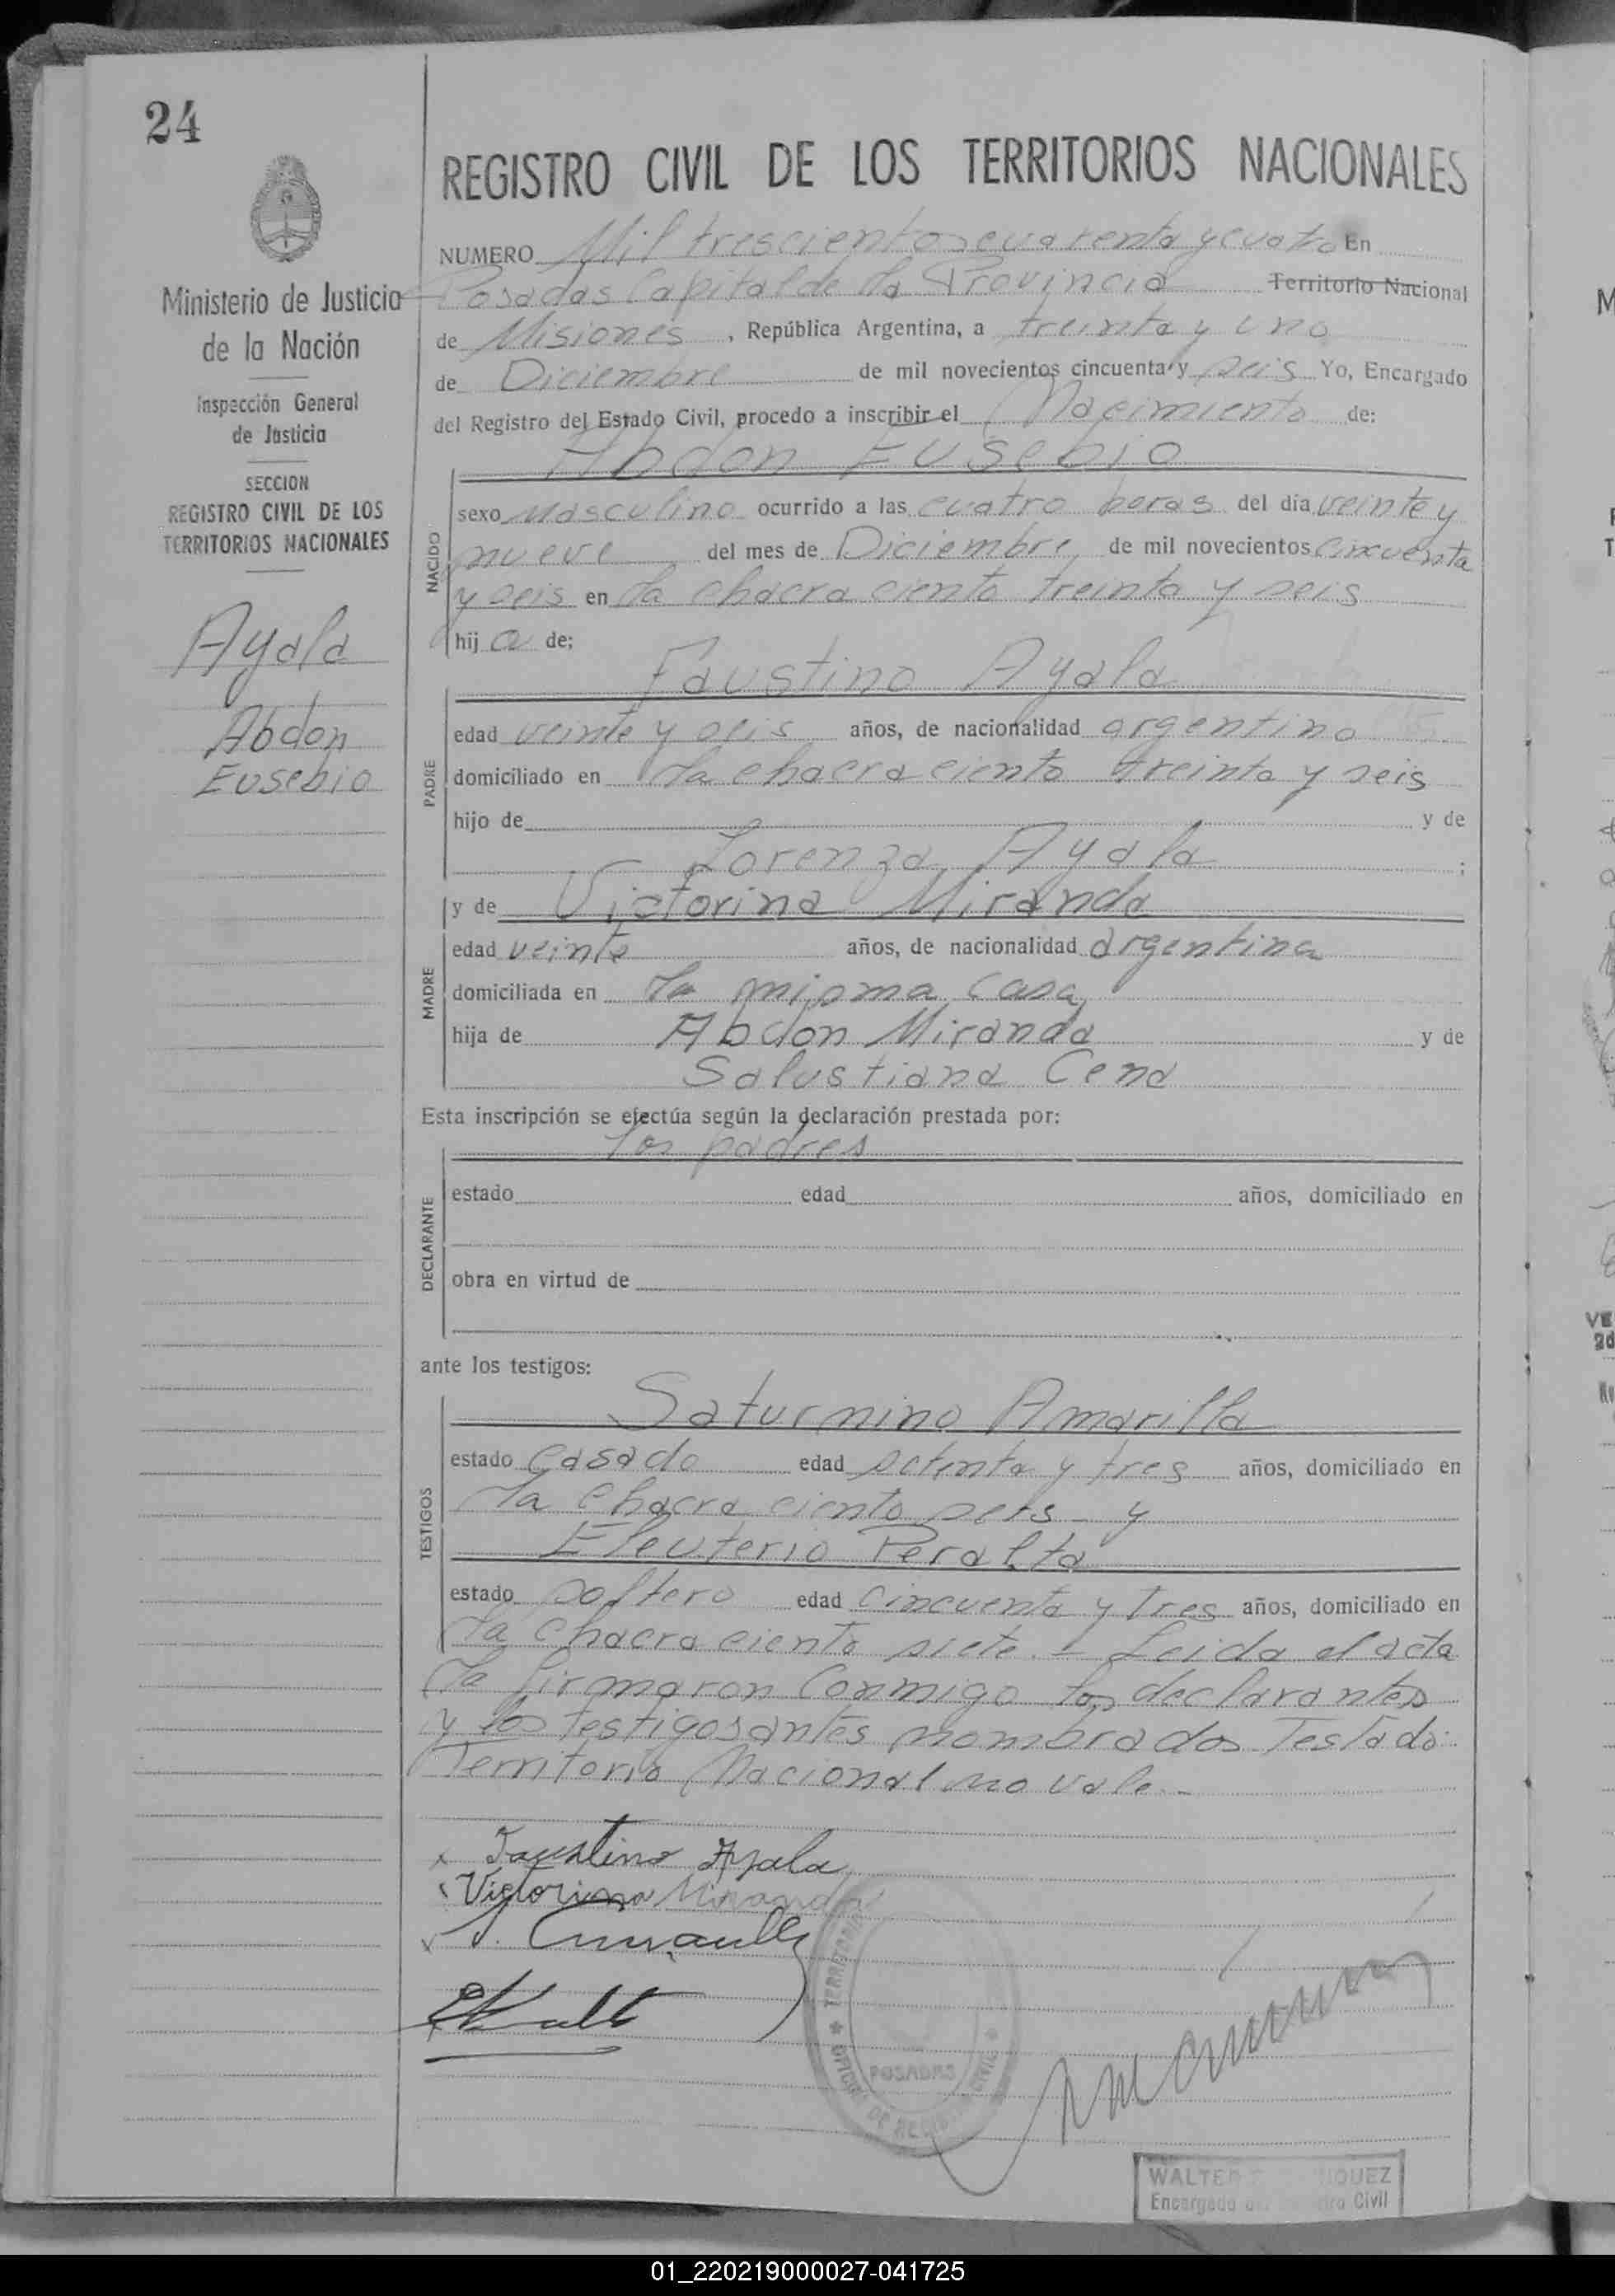 24
REGISTRO CIVIL DE LOS TERRITORIOS NACIONALES
Ministerio de Justicia
de la Nación
Inspección General
de Justicia
SECCION
REGISTRO CIVIL DE LOS
TERRITORIOS NACIONALES
Ayala
Abdon
Eusebio
NUMERO Mil trescientos cuarenta y cuatro En
Posadas Capital de la Provincia Territorio Nacional
de Misiones, República Argentina, a treinta y uno
de Diciembre de mil novecientos cincuenta y seis Yo, Encargado
del Registro del Estado Civil, procedo a inscribir el Nacimiento de:
Abdon Eusebio
NACIDO
sexo Masculino ocurrido a las cuatro horas del día veinte y
nueve del mes de Diciembre de mil novecientos cincuenta
y seis en la chacra ciento treinta y seis
hij o de:
Faustino Ayala
PADRE
edad veinte y seis años, de nacionalidad argentino
domiciliado en la chacra ciento treinta y seis
hijo de y de
Lorenza Ayala ;
y de Victorina Miranda
MADRE
edad veinte años, de nacionalidad argentina
domiciliada en la misma casa
hija de Abdon Miranda y de
Salustiana Cena
Esta inscripción se efectúa según la declaración prestada por:
los padres
DECLARANTE
estado edad años, domiciliado en
obra en virtud de
ante los testigos:
Saturnino Amarilla
TESTIGOS
estado Casado edad setenta y tres años, domiciliado en
la chacra ciento seis y
Eleuterio Peralta
estado soltero edad cincuenta y tres años, domiciliado en
la chacra ciento siete.- Leida el acta
la firmaron conmigo los declarantes
y los testigos antes nombrados Testado:
Territorio Nacional no vale.-
x Faustino Ayala
Victorina Miranda
TERRITORIOS
POSADAS
OFICINA DE REGISTRO CIVIL
WALTER
Encargado Civil
VE
01_220219000027-041725